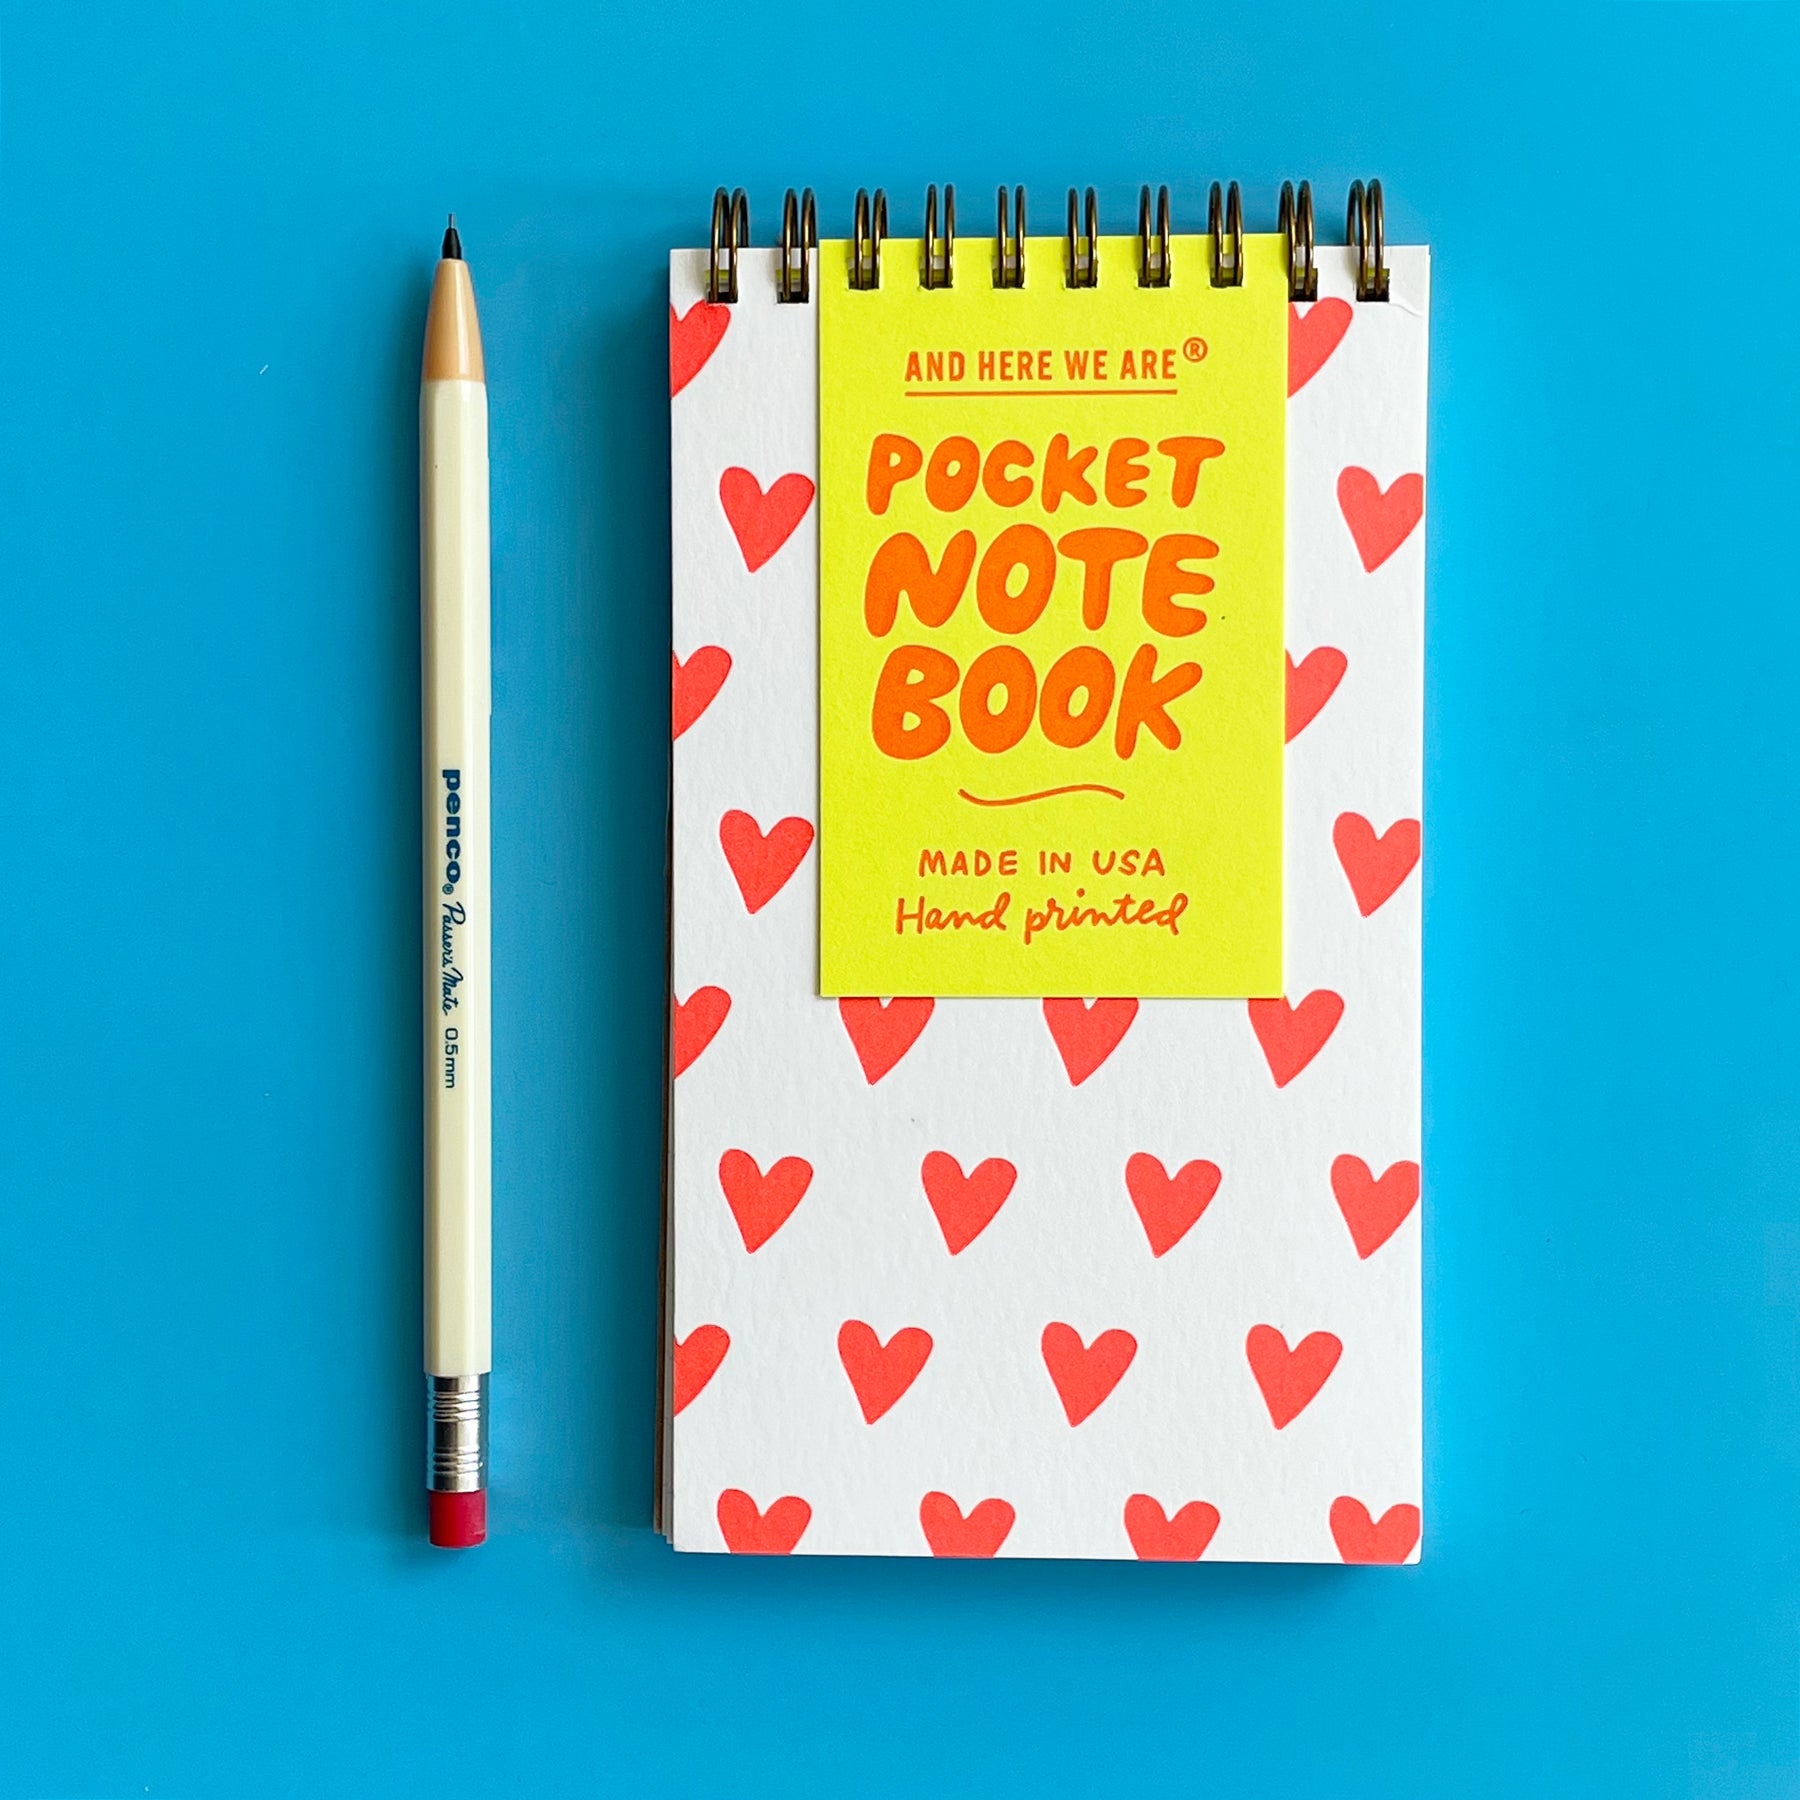 penco® Passers Mate 0.5mm
AND HERE WE ARE®
POCKET
NOTE
BOOK
MADE IN USA
Hand printed